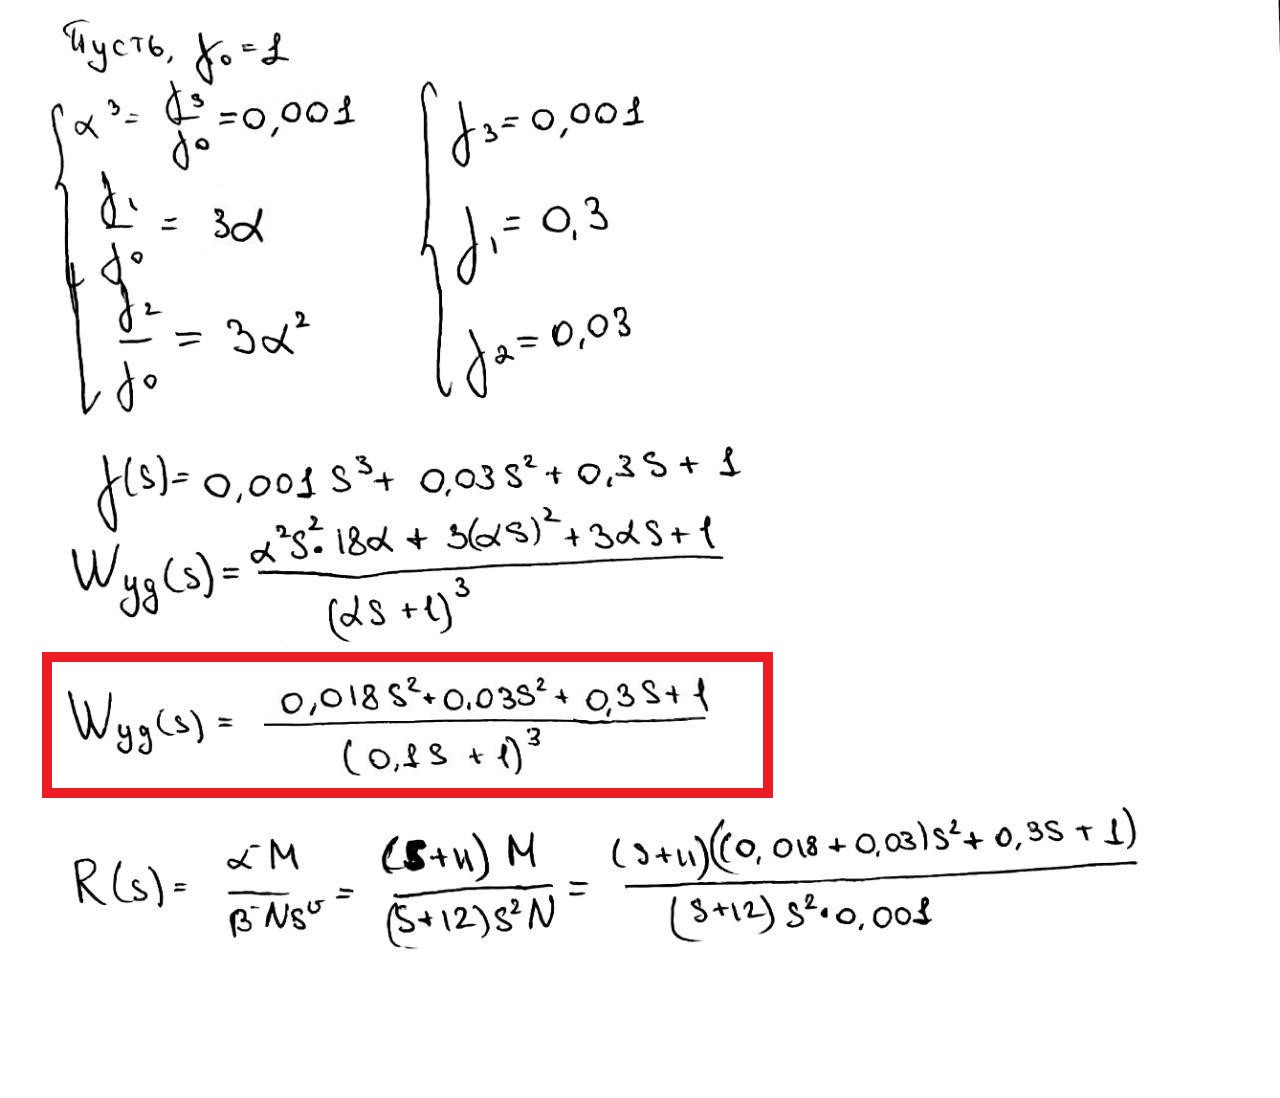 Пусть, f₀ = 1
α³ = f₃/f₀ = 0,001
f₁/f₀ = 3α
f₂/f₀ = 3α²
f₃ = 0,001
f₁ = 0,3
f₂ = 0,03
f(s) = 0,001 s³ + 0,03 s² + 0,3 s + 1
Wyg(s) = (α²s² · 18α + 3(αs)² + 3αs + 1)/(αs + 1)³
Wyg(s) = (0,018 s² + 0.03s² + 0,3 s + 1)/(0,1 s + 1)³
R(s) = α⁻M/β⁻Nsᵛ = (s+11) M/(s+12)s²N = (s+11)((0,018 + 0,03)s² + 0,3s + 1)/(s+12) s² · 0,001